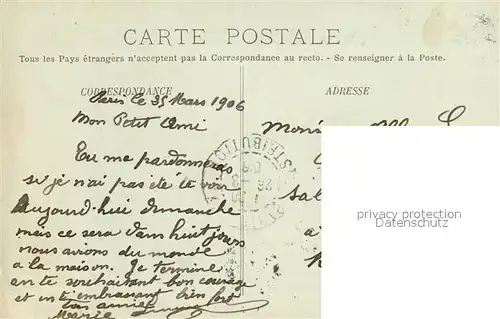 CARTE POSTALE
Tous les Pays étrangers n'acceptent pas la Correspondance au recto. - Se renseigner à la Poste.
CORRESPONDANCE
ADRESSE
Paris le 25 Mars 1906
Mon Petit Ami
Tu me pardonneras
si je n'ai pas été te voir
aujourd'hui dimanche
mais ce sera dans huit jours
nous avions du monde
a la maison. Je termine
en te souhaitant bon courage
et en t'embrassant bien fort
ton amie
Marie
DISTRIBUTION
privacy protection
watermark